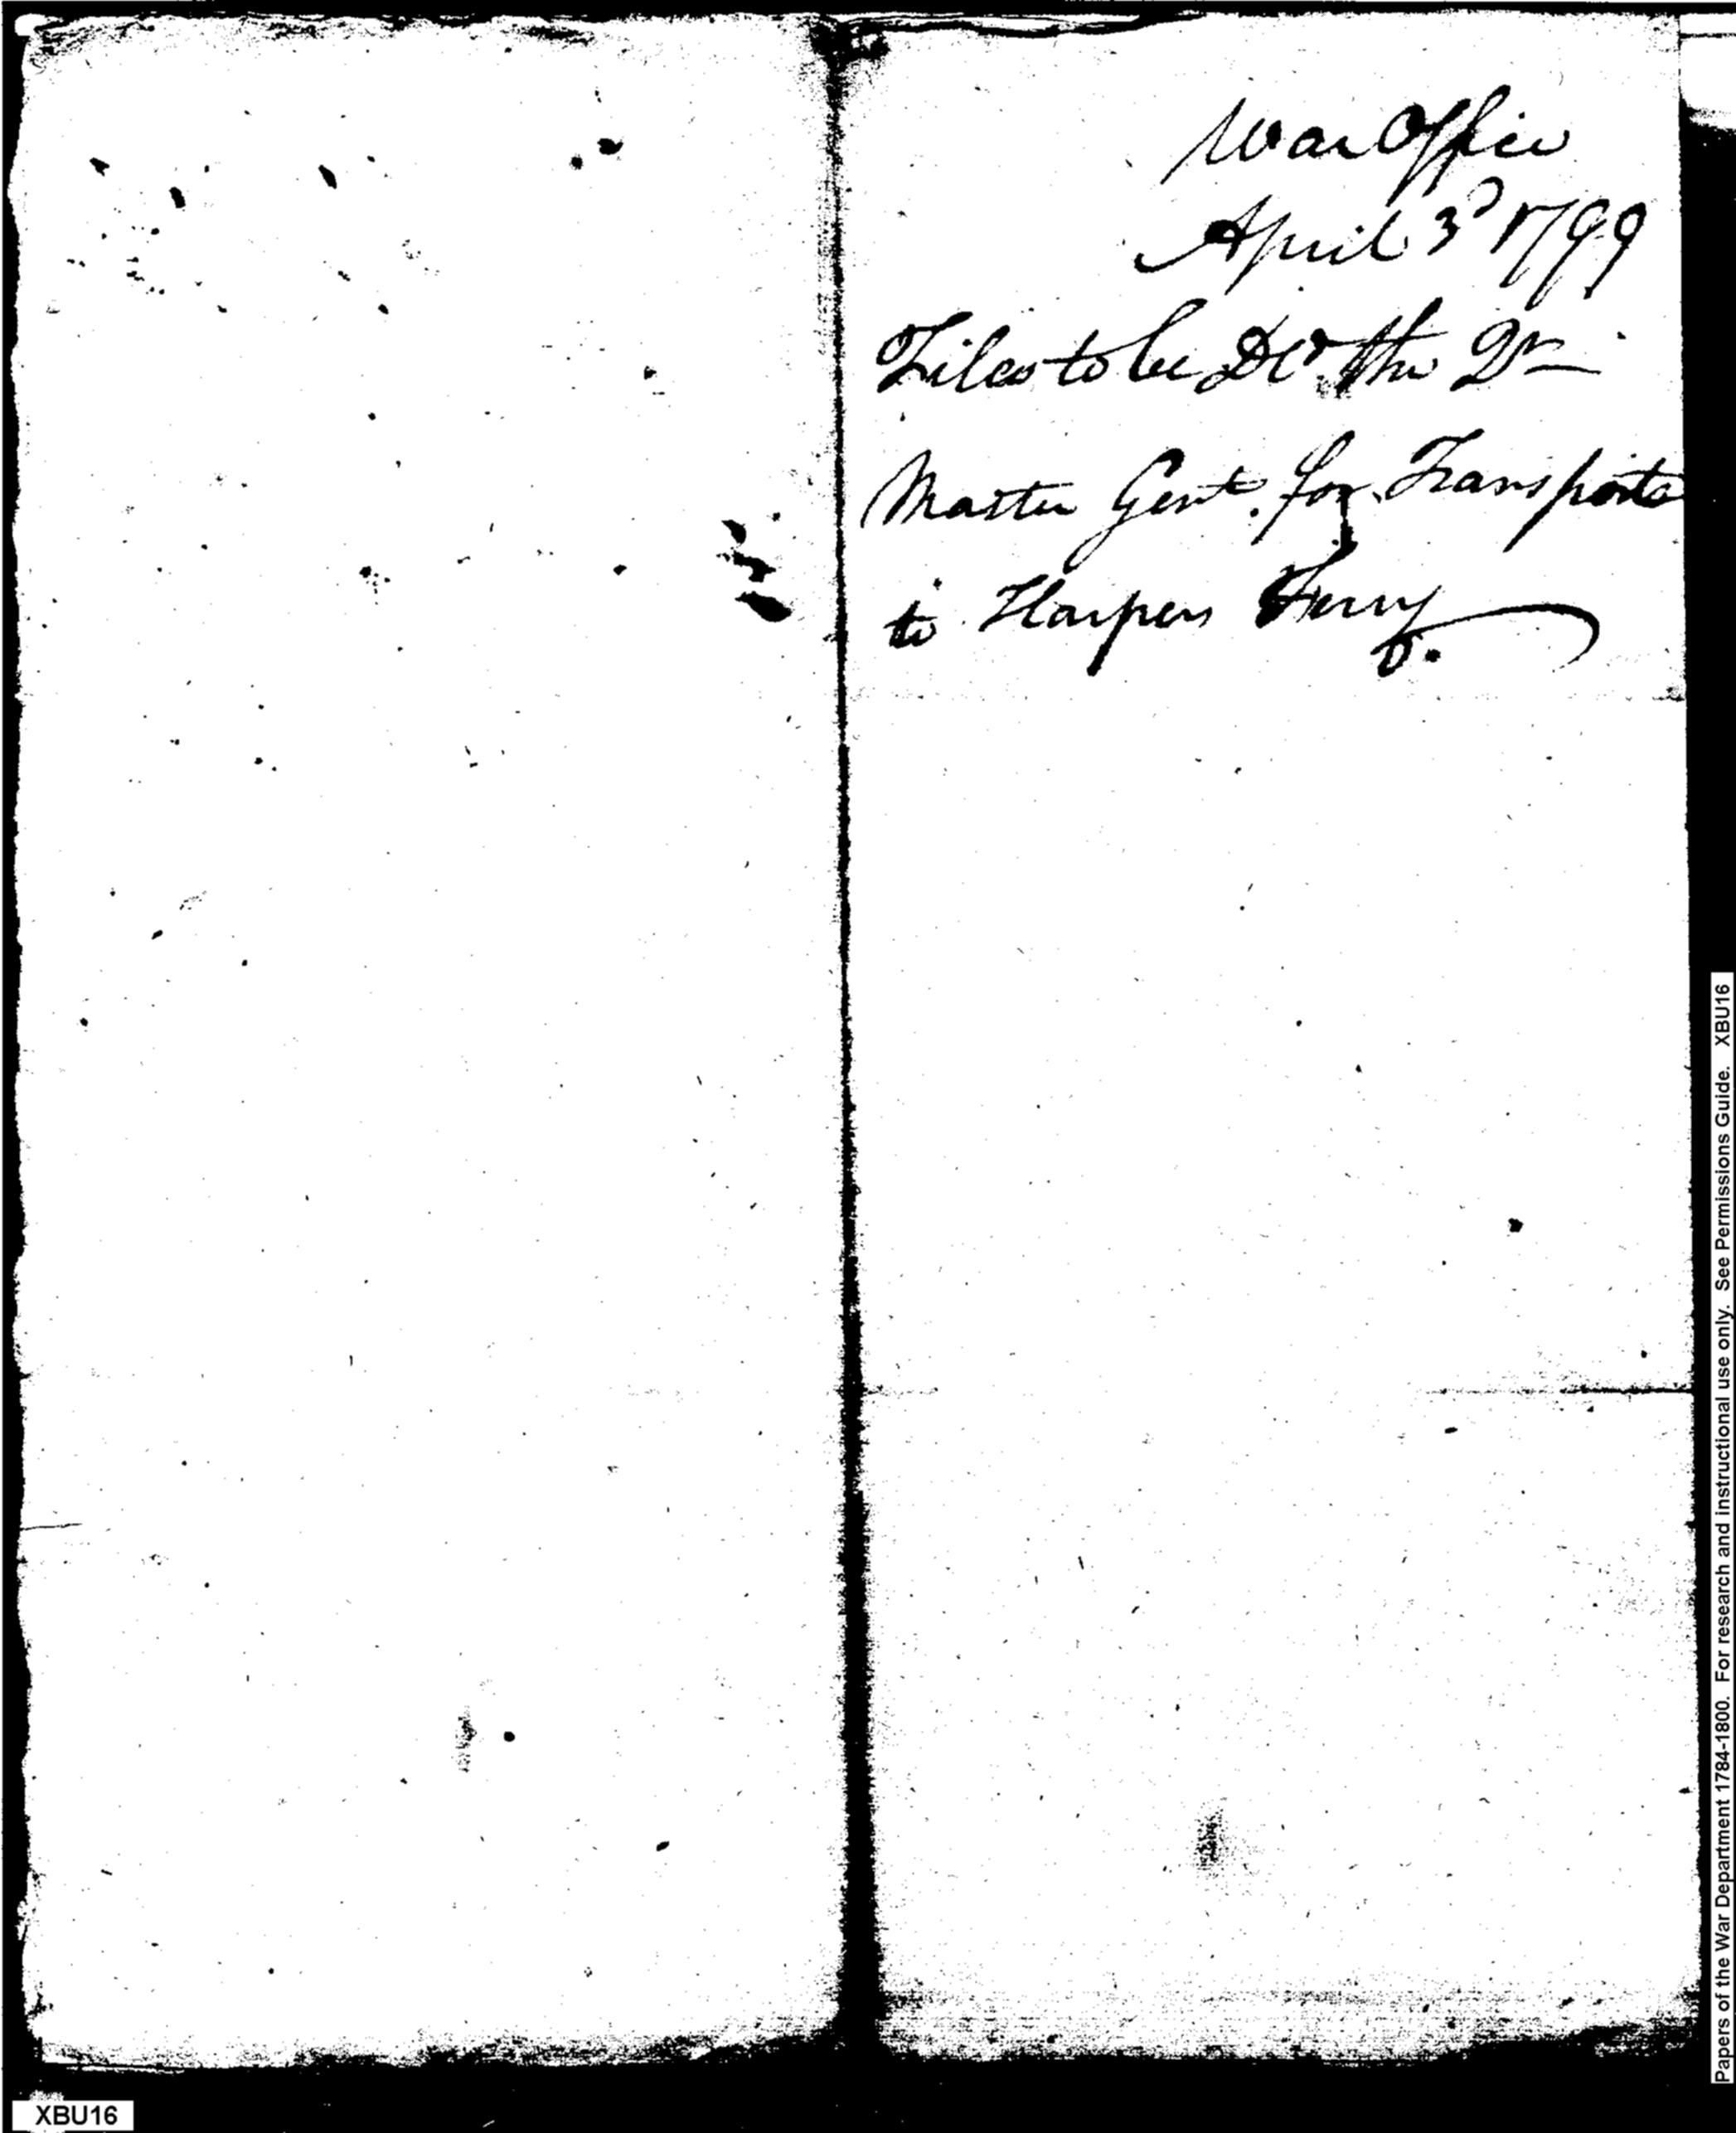 War Office
April 3d 1799
Files to be Dd. the Qr
Master Genl. for Transporta
to Harpers Ferry
XBU16
Papers of the War Department 1784-1800. For research and instructional use only. See Permissions Guide. XBU16